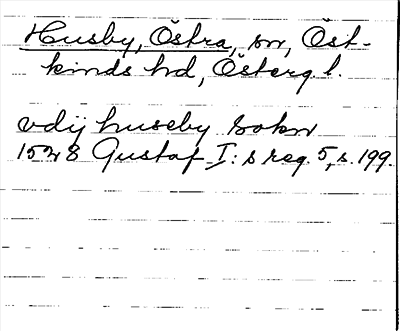 Husby, Östra, sn, Öst-
kinds hd, Österg. l.
vdij huseby sokn
1528 Gustaf I:s reg. 5, s. 199.